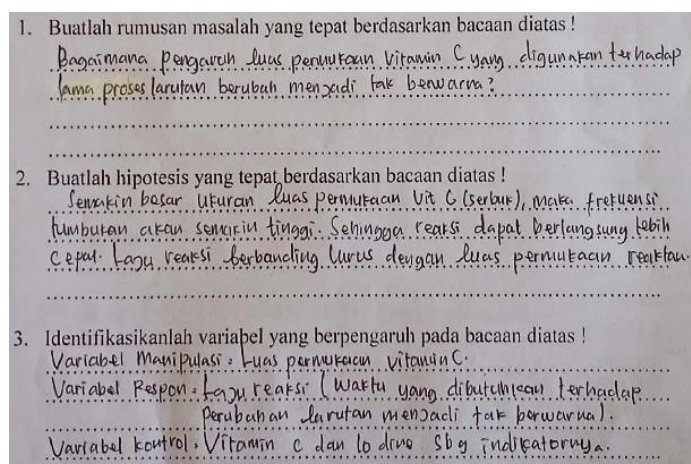 1. Buatlah rumusan masalah yang tepat berdasarkan bacaan diatas !
Bagaimana Pengaruh luas permukaan Vitamin C yang digunakan terhadap
lama proses larutan berubah menjadi tak berwarna?
2. Buatlah hipotesis yang tepat berdasarkan bacaan diatas !
Semakin besar ukuran luas permukaan Vit C (serbuk), maka frekuensi
tumbukan akan semakin tinggi. Sehingga reaksi dapat berlangsung lebih
cepat. Laju reaksi berbanding lurus dengan luas permukaan reaktan.
3. Identifikasikanlah variabel yang berpengaruh pada bacaan diatas !
Variabel Manipulasi : Luas permukaan vitamin C.
Variabel Respon : Laju reaksi (Waktu yang dibutuhkan terhadap
Perubahan larutan menjadi tak berwarna).
Variabel kontrol : Vitamin C dan Iodine sbg indikatornya.